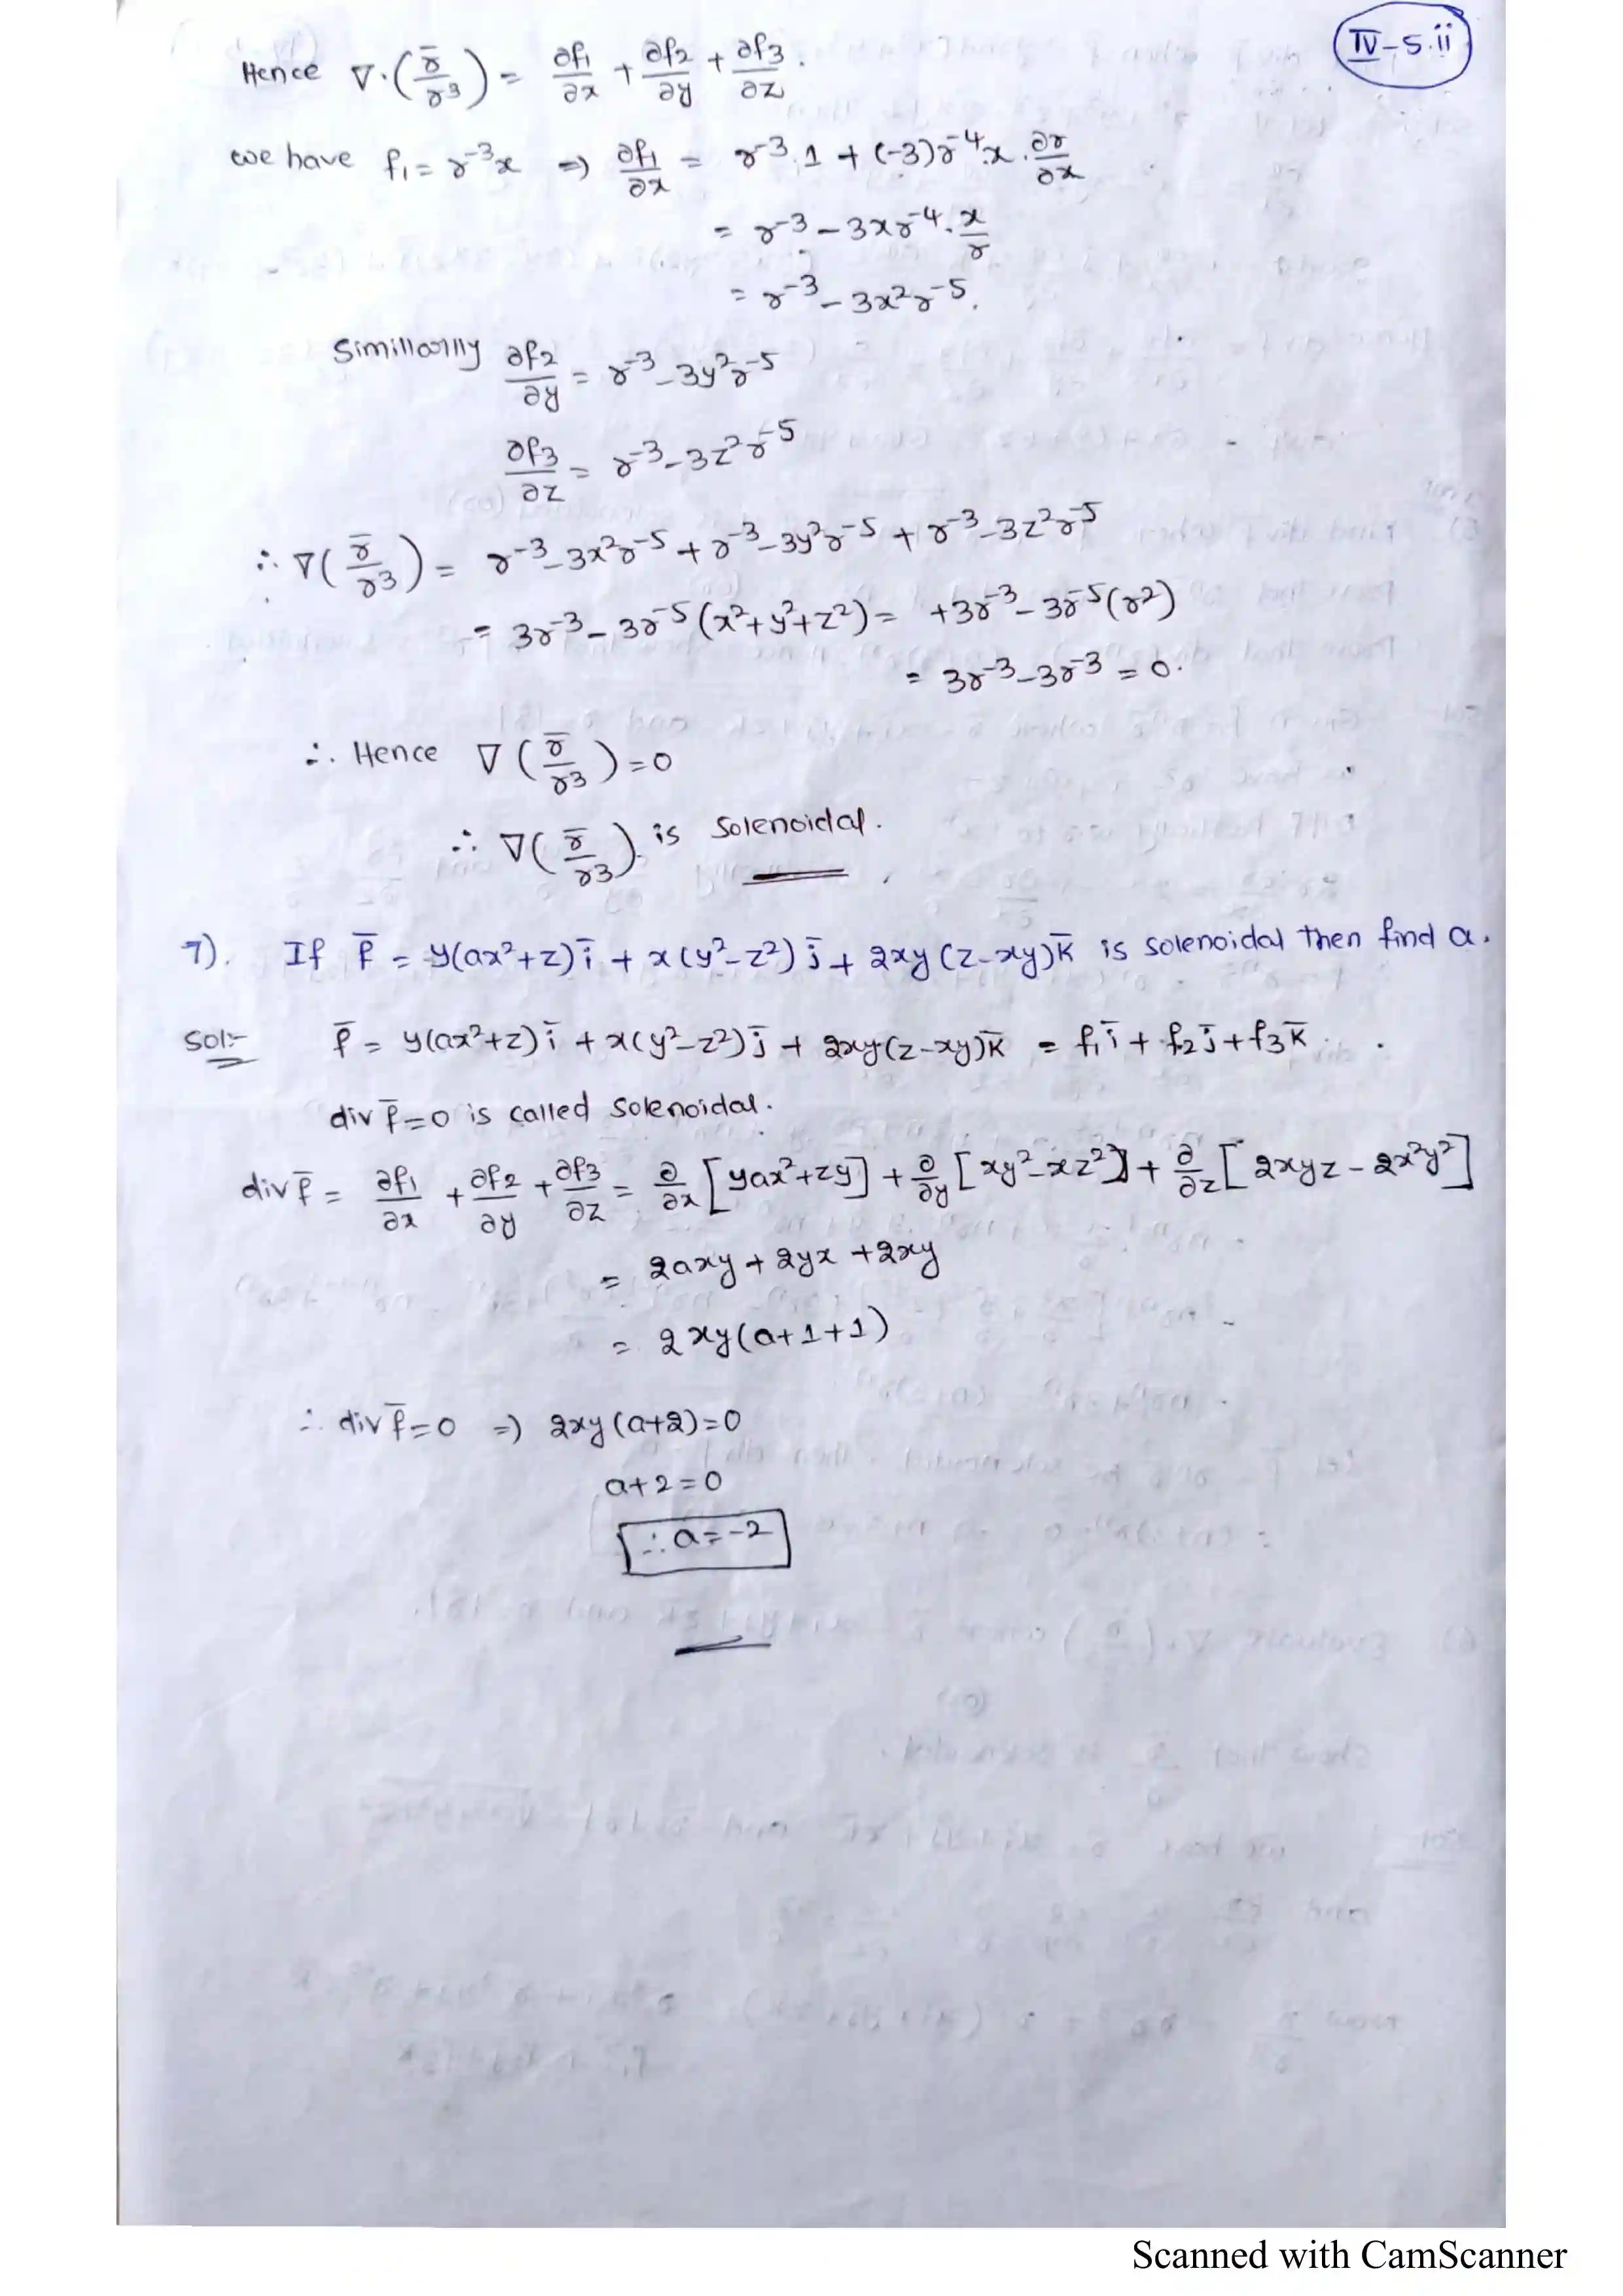 IV-5.ii
Hence ∇·(r̄/r³) = ∂f₁/∂x + ∂f₂/∂y + ∂f₃/∂z.
we have f₁ = r⁻³x ⇒ ∂f₁/∂x = r⁻³.1 + (-3)r⁻⁴.x.∂r/∂x
= r⁻³ - 3xr⁻⁴.x/r
= r⁻³ - 3x²r⁻⁵.
Simillarlly ∂f₂/∂y = r⁻³ - 3y²r⁻⁵
∂f₃/∂z = r⁻³ - 3z²r⁻⁵
∴ ∇(r̄/r³) = r⁻³ - 3x²r⁻⁵ + r⁻³ - 3y²r⁻⁵ + r⁻³ - 3z²r⁻⁵
= 3r⁻³ - 3r⁻⁵(x²+y²+z²) = +3r⁻³ - 3r⁻⁵(r²)
= 3r⁻³ - 3r⁻³ = 0.
∴ Hence ∇(r̄/r³) = 0
∴ ∇(r̄/r³) is solenoidal.
7). If f̄ = y(ax²+z)ī + x(y²-z²)j̄ + 2xy(z-xy)k̄ is solenoidal then find a.
Sol:- f̄ = y(ax²+z)ī + x(y²-z²)j̄ + 2xy(z-xy)k̄ = f₁ī + f₂j̄ + f₃k̄.
div f̄ = 0 is called solenoidal.
div f̄ = ∂f₁/∂x + ∂f₂/∂y + ∂f₃/∂z = ∂/∂x [yax²+zy] + ∂/∂y [xy²-xz²] + ∂/∂z [2xyz - 2x²y²]
= 2axy + 2yx + 2xy
= 2xy(a+1+1)
∴ div f̄ = 0 ⇒ 2xy(a+2) = 0
a+2 = 0
∴ a = -2
Scanned with CamScanner